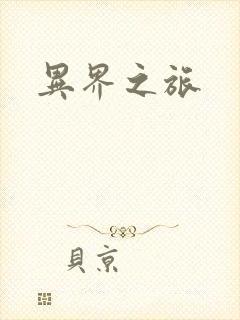 異界之旅
貝京